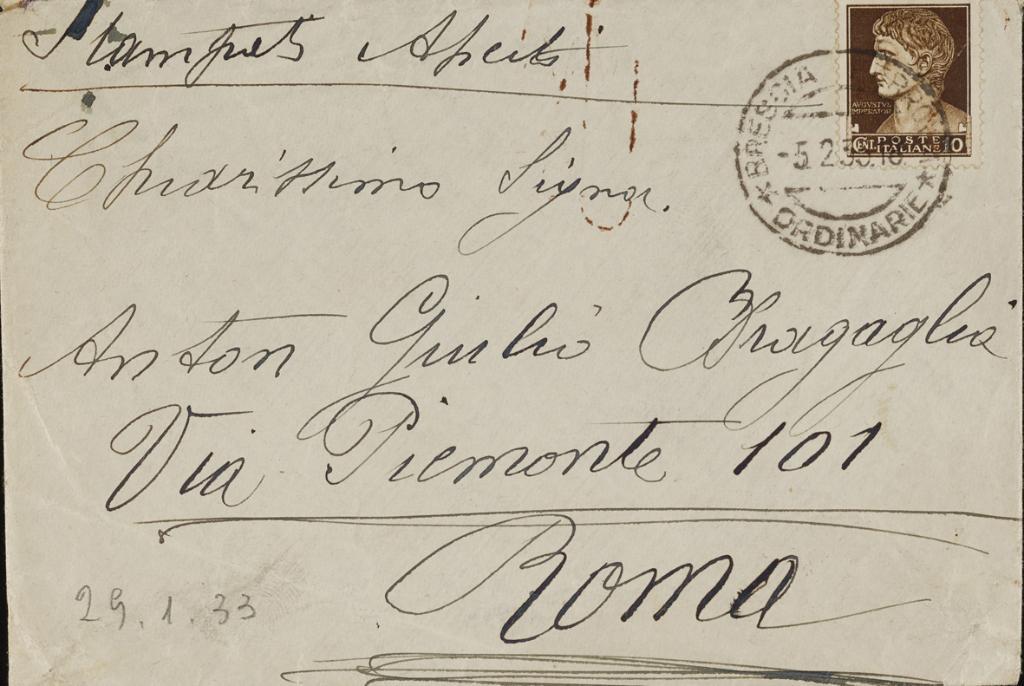 Stampets Apeits
Chiarissimo Signor.
Anton Giulio Bragaglia
Via Piemonte 101
Roma
29.1.33
AVGVSTVS
IMPERATOR
CENT. POSTE 10
ITALIANE
BRESCIA
-5.2.33.18
* ORDINARIE *